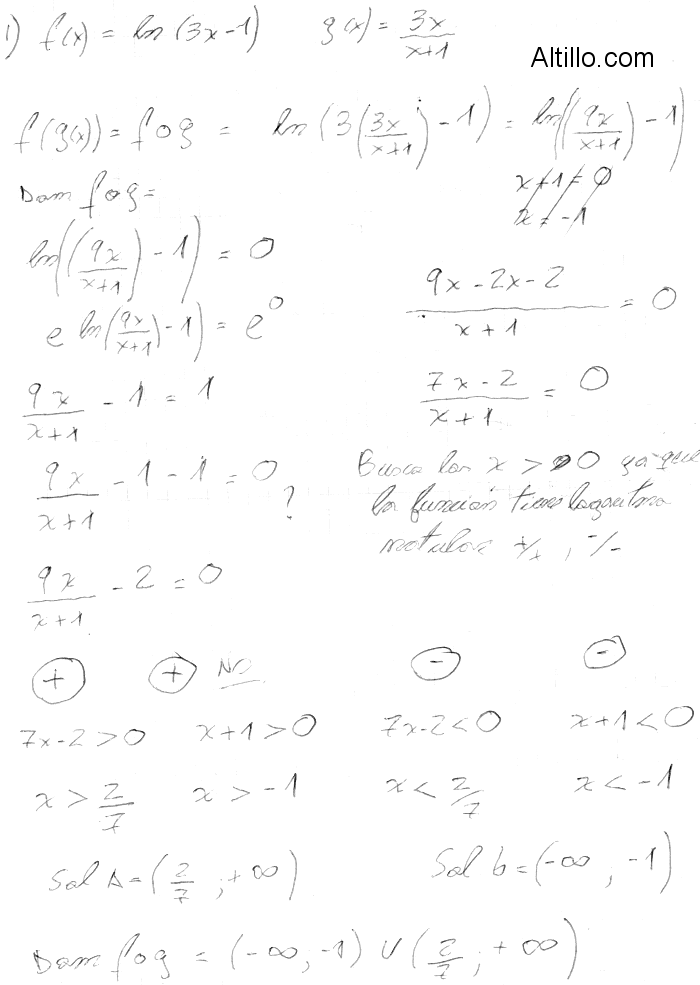 1) f(x) = ln (3x-1)    g(x) = 3x/(x+1)
Altillo.com
f(g(x)) = f o g = ln (3 (3x/(x+1)) - 1) = ln((9x/(x+1)) - 1)
x+1 = 0
x = -1
Dom f o g =
ln((9x/(x+1)) - 1) = 0
e ln(9x/(x+1)) - 1) = e^0
9x/(x+1) - 1 = 1
9x/(x+1) - 1 - 1 = 0 ?
9x/(x+1) - 2 = 0
(9x - 2x - 2)/(x + 1) = 0
(7x - 2)/(x+1) = 0
Busco los x > 0 ya que
la función tiene logaritmo
+/+ , -/-
+    + NO    -    -
7x-2 > 0    x+1 > 0    7x-2 < 0    x+1 < 0
x > 2/7    x > -1    x < 2/7    x < -1
Sol A = (2/7 ; +∞)    Sol b = (-∞ , -1)
Dom f o g = (-∞, -1) U (2/7 ; +∞)